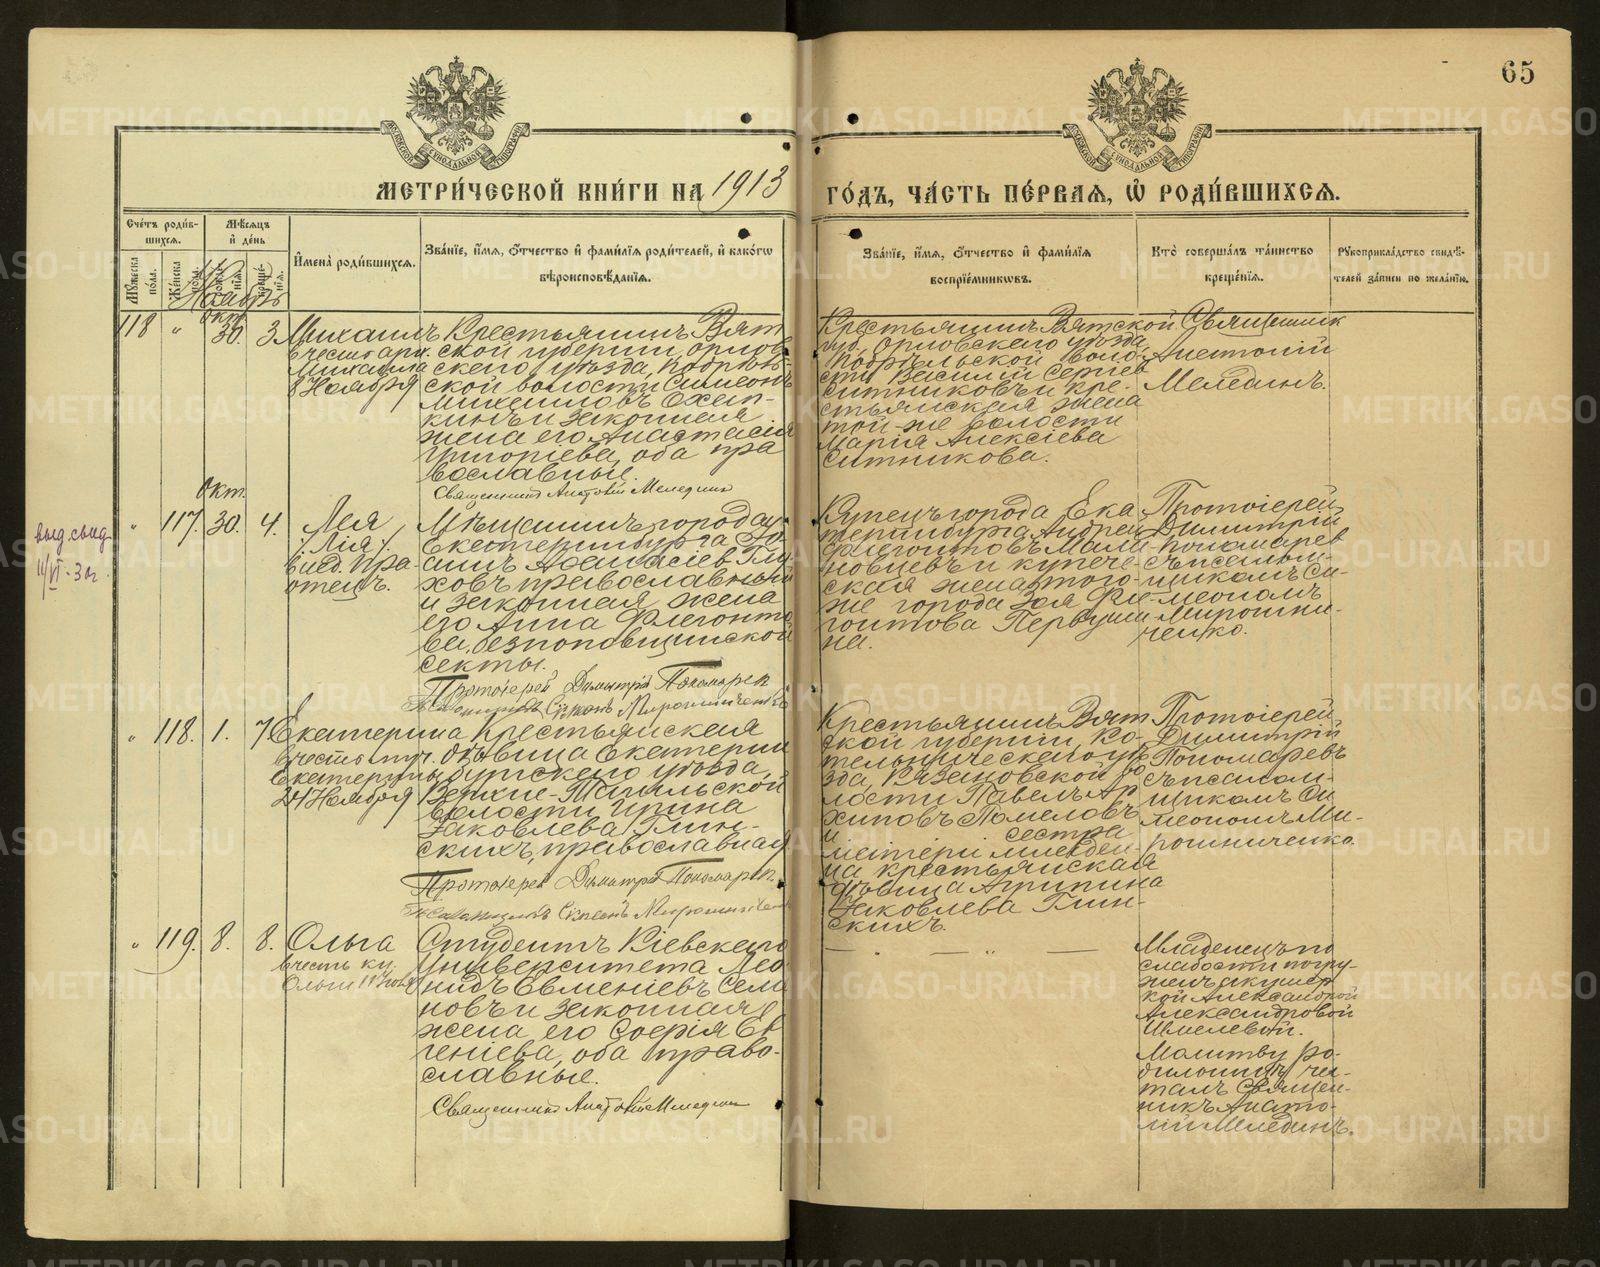 65
МОСКОВСКОЙ СѴНОДАЛЬНОЙ ТИПОГРАФІИ
МОСКОВСКОЙ СѴНОДАЛЬНОЙ ТИПОГРАФІИ
МЕТРИ́ЧЕСКОЙ КНИ́ГИ НА 1913
ГО́ДЪ, ЧА́СТЬ ПЕ́РВАЯ, Ѽ РОДИ́ВШИХСЯ.
Сче́тъ роди́в-
шихся.
Мѣ́сяцъ
и҆ де́нь
И҆мена̀ роди́вшихся.
Зва́нїе, и҆́мя, ѻ҆́тчество и҆ фами́лїя роди́телей, и҆ како́гѡ
вѣроисповѣ́данїя.
Мꙋ́жеска
пола.
Же́нска
пола.
рожде́-
нїя.
креще́-
нїя.
Зва́нїе, и҆́мя, ѻ҆́тчество и҆ фами́лїя
воспрїе́мникѡвъ.
Кто̀ соверша́лъ та́инство
креще́нїя.
Рꙋкоприкла́дство свидѣ́-
телей за́писи по жела́нїю.
Ноябрь
окт.
118 " 30. 3
Михаилъ
в честь арх.
Михаила
8 Ноября
Крестьянинъ Вят
ской губерніи, Орлов
скаго уѣзда, Подрѣль-
ской волости Симеонъ
Михаиловъ
и законная
жена его Анастасія
Григоріева, оба пра
вославные.
Священникъ Анатолій Мелединъ
Крестьянинъ Вятской
губ., Орловскаго уѣзда,
Подрѣльской воло-
сти Василій Сергіев
Ситниковъ и кре-
стьянская жена
той-же волости
Марія Алексіева
Ситникова.
Священник
Анатолій
Мелединъ.
Окт.
" 117. 30. 4.
Лея
/Лія/.
в нед. Пра-
отецъ.
Мѣщанинъ города
Екатеринбурга Іо-
аннъ Аѳанасіев Глу
ховъ православный
и законная жена
его Анна Флегонто
ва, безпоповщинской
секты.
Протоіерей Димитрій Пономарев
Псаломщикъ Симеонъ Мирошниченко
Купецъ города Ека
теринбурга Андрей
Флегонтовъ Мали-
новцевъ и купече-
ская жена того-
же города Зоя Фле
гонтова Первуши
на.
Протоіерей
Димитрій
Пономарев
съ псалом-
щикомъ Си-
меономъ
Мирошни-
ченко.
выд. свид.
11/VI-30г.
" 118. 1. 7
Екатерина
в честь муч.
Екатерины
24 Ноября
Крестьянская
дѣвица Екатерин
бургскаго уѣзда,
Верхне-Тагильской
волости Ирина
Іаковлева Глин-
скихъ, православная
Протоіерей Димитрій Пономарев.
Псаломщикъ Симеонъ Мирошниченко
Крестьянинъ Вят
ской губерніи, Ко-
тельническаго уѣ
зда, Казаковской во
лости Павелъ Ар
хиповъ Помеловъ
и сестра
матери младен-
ца крестьянская
дѣвица Агрипина
Іаковлева Глин-
скихъ.
Протоіерей
Димитрій
Пономаревъ
съ псалом-
щикомъ Си
меономъ Ми-
рошниченко.
" 119. 8. 8.
Ольга
в честь кн.
Ольги 11 Іюля
Студентъ Кіевскаго
Университета Лео
нидъ Евменіевъ Сема
новъ и законная
жена его Софія Ев
геніева, оба право-
славные.
Священникъ Анатолій Мелединъ
— " — " —
Младенецъ по
слабости погру-
женъ акушер
кой Александрой
Александровой
Шмелевой.
Молитву ро-
дильницѣ чи-
талъ Священ-
никъ Анато-
лій Мелединъ.
METRIKI.GASO-URAL.RU